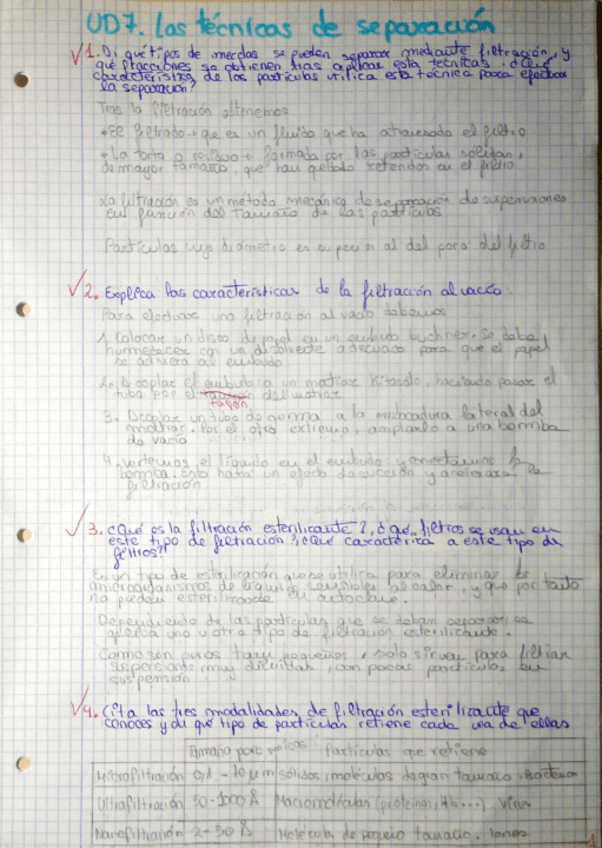 UD7. Las técnicas de separación
1. Di qué tipos de mezclas se pueden separar mediante filtración, y
qué fracciones se obtienen tras aplicar esta técnica. ¿Qué
característica de las partículas utiliza esta técnica para efectuar
la separación?
Tras la filtración obtenemos
El filtrado, que es un fluido que ha atravesado el filtro
La torta o residuo formada por las partículas sólidas,
de mayor tamaño, que han quedado retenidas en el filtro
La filtración es un método mecánico de separación de suspensiones
en función del tamaño de las partículas
Partículas cuyo diámetro es superior al del poro del filtro
2. Explica las características de la filtración al vacío.
Para efectuar una filtración al vacío debemos
1. Colocar un disco de papel en un embudo buchner. Se debe
humedecer con un disolvente adecuado para que el papel
se adhiera al embudo
2. Acoplar el embudo a un matraz Kitasato, haciendo pasar el
tubo por el tapón del matraz
tapón
3. Acoplar un tubo de goma a la embocadura lateral del
matraz. Por el otro extremo, acoplarlo a una bomba
de vacío
4. Vertemos el líquido en el embudo y conectamos la
bomba. Esto hará un efecto de succión y acelerará la
filtración
3. ¿Qué es la filtración esterilizante?, ¿qué filtros se usan en
este tipo de filtración?, ¿qué caracteriza a este tipo de
filtros?
Es un tipo de esterilización que se utiliza para eliminar los
microorganismos de líquidos sensibles al calor, y que por tanto
no pueden esterilizarse en autoclave.
Dependiendo de las partículas que se deban separar, se
aplicará una u otra tipo de filtración esterilizante.
Como son poros tan pequeños, solo sirven para filtrar
suspensiones muy diluidas, con pocas partículas en
suspensión
4. Cita las tres modalidades de filtración esterilizante que
conoces y di qué tipo de partículas retiene cada una de ellas
Tamaño poro Partículas que retiene
Microfiltración 0,1 - 10 μm sólidos, moléculas de gran tamaño. Bacterias
Ultrafiltración 50-1000 Å Macromoléculas (proteínas, Hb...), Virus
Nanofiltración 2-50 Å Molécula de pequeño tamaño. Iones
1